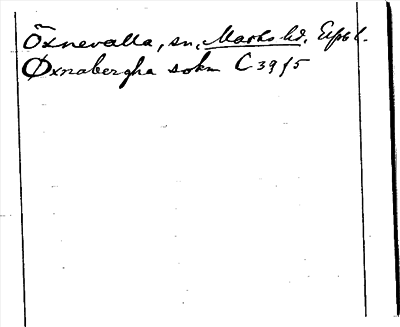 Öxnevalla, sn, Marks hd. Elfsb l.
Øxnabergha sokn C 39 f 5